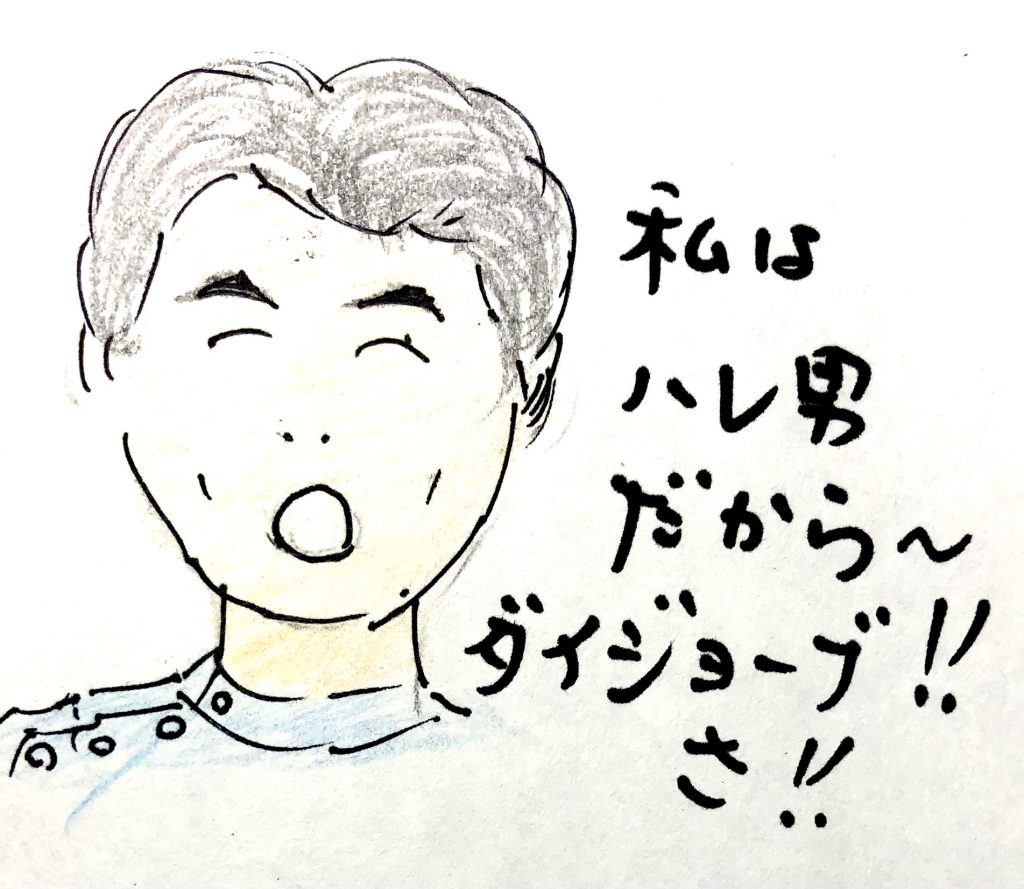 私は
ハレ男
だから〜
ダイジョーブ!!
さ!!